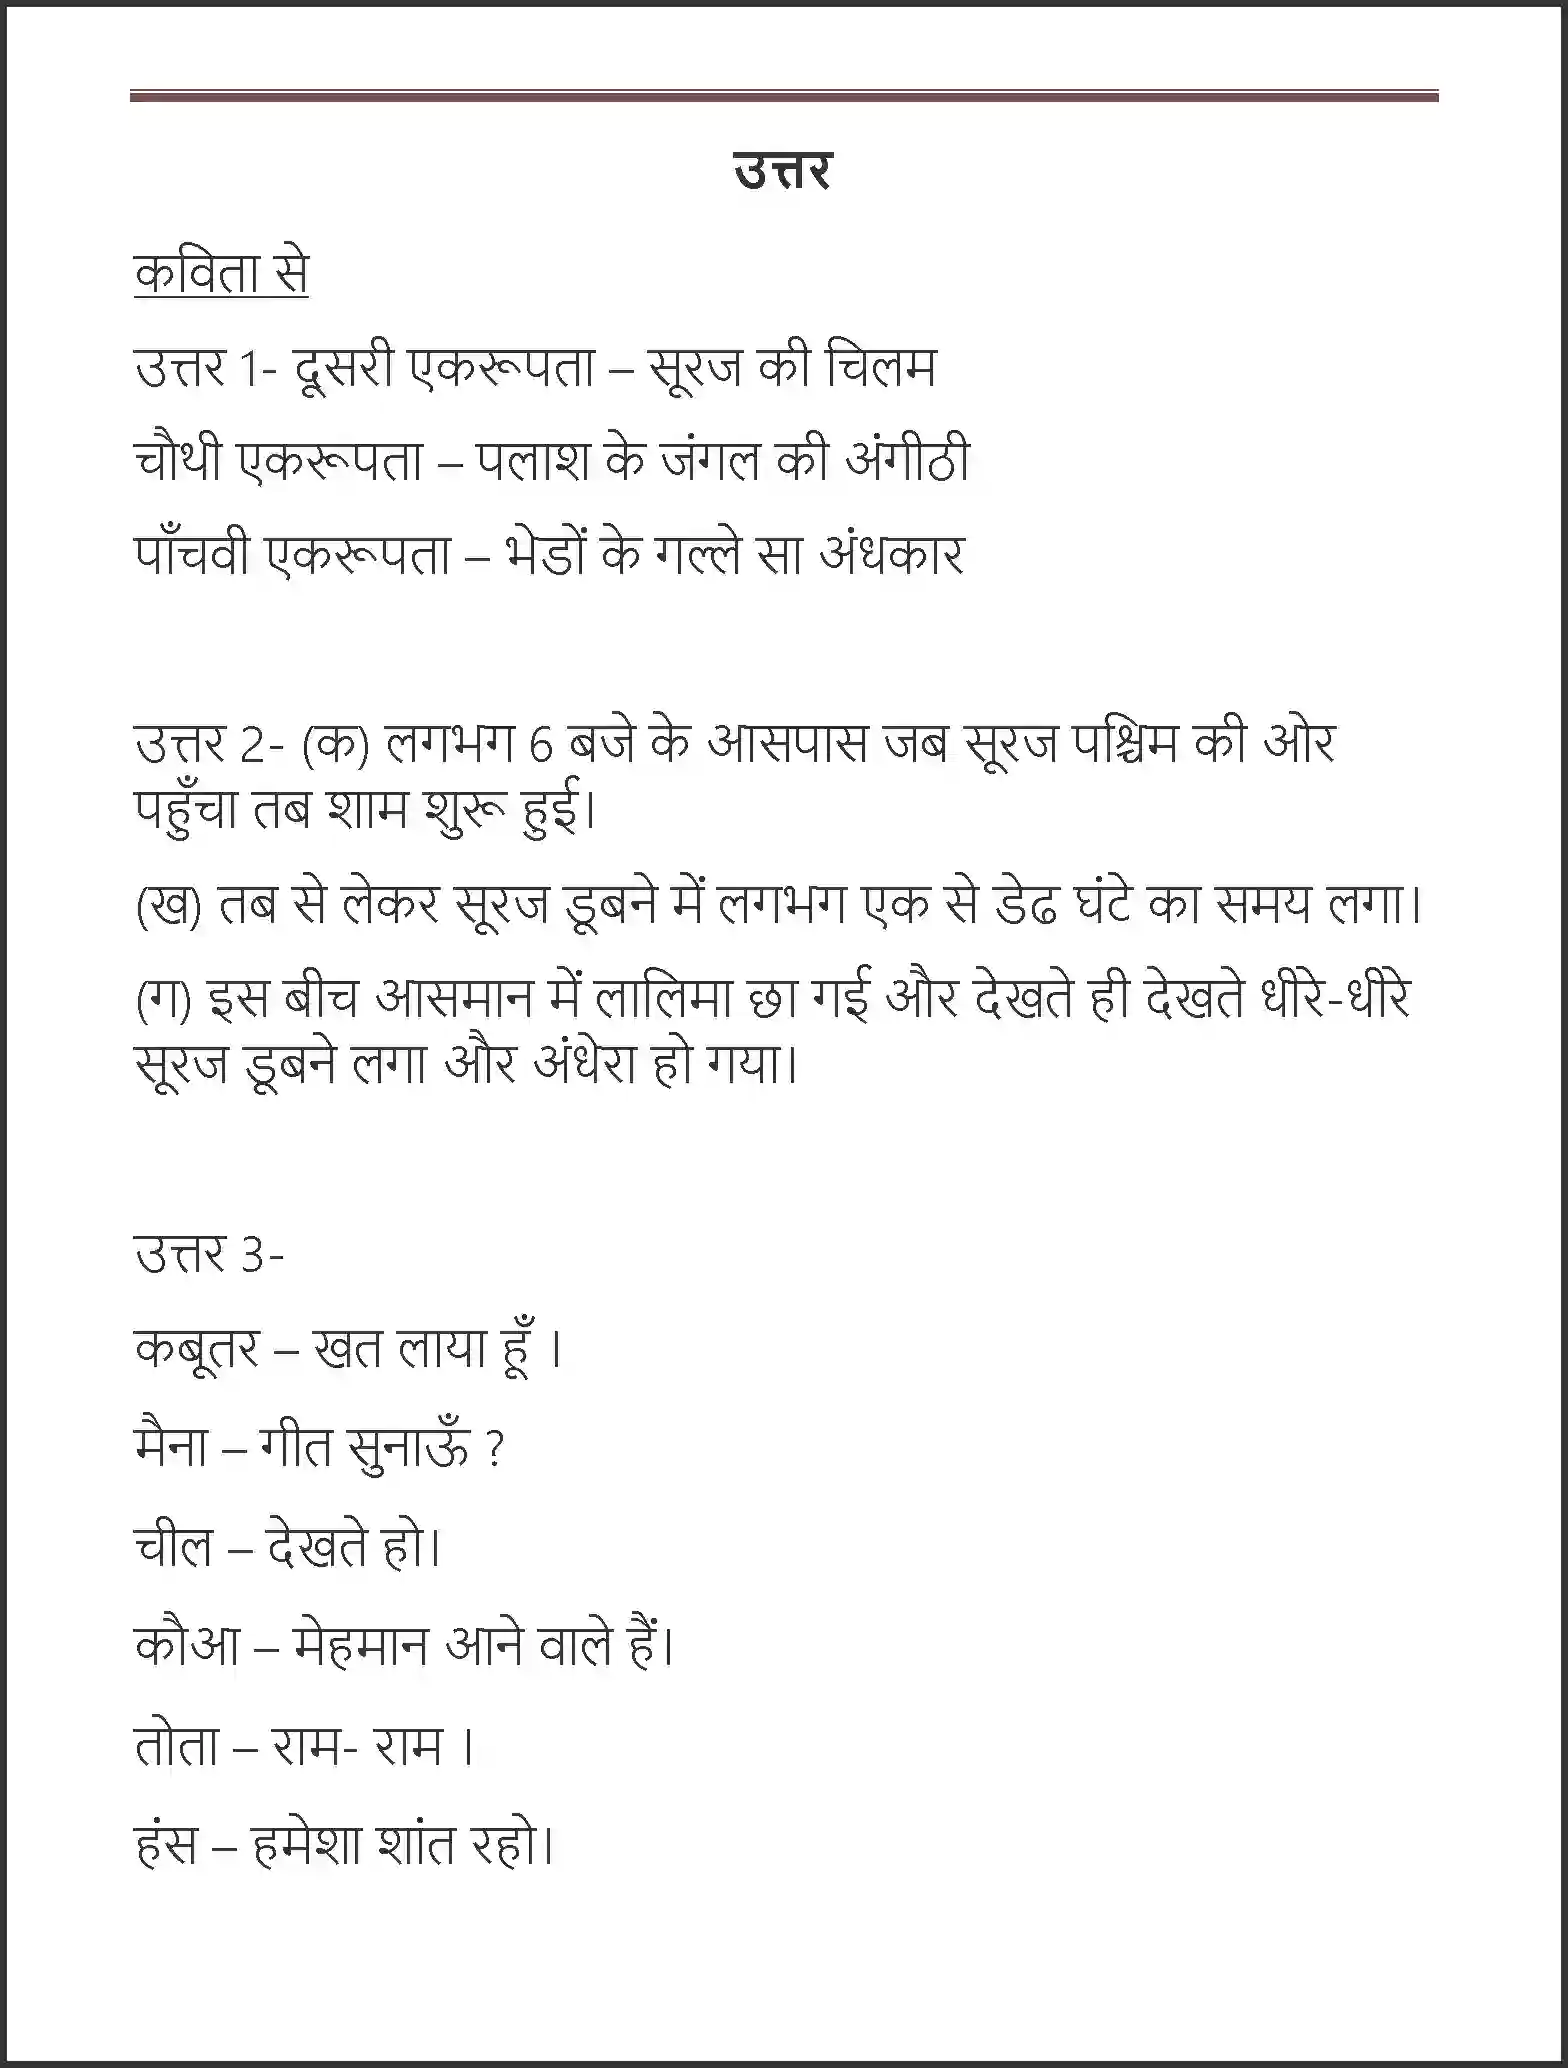 उत्तर
कविता से
उत्तर 1- दूसरी एकरूपता – सूरज की चिलम
चौथी एकरूपता – पलाश के जंगल की अंगीठी
पाँचवी एकरूपता – भेडों के गल्ले सा अंधकार
उत्तर 2- (क) लगभग 6 बजे के आसपास जब सूरज पश्चिम की ओर
पहुँचा तब शाम शुरू हुई।
(ख) तब से लेकर सूरज डूबने में लगभग एक से डेढ घंटे का समय लगा।
(ग) इस बीच आसमान में लालिमा छा गई और देखते ही देखते धीरे-धीरे
सूरज डूबने लगा और अंधेरा हो गया।
उत्तर 3-
कबूतर – खत लाया हूँ ।
मैना – गीत सुनाऊँ ?
चील – देखते हो।
कौआ – मेहमान आने वाले हैं।
तोता – राम- राम ।
हंस – हमेशा शांत रहो।